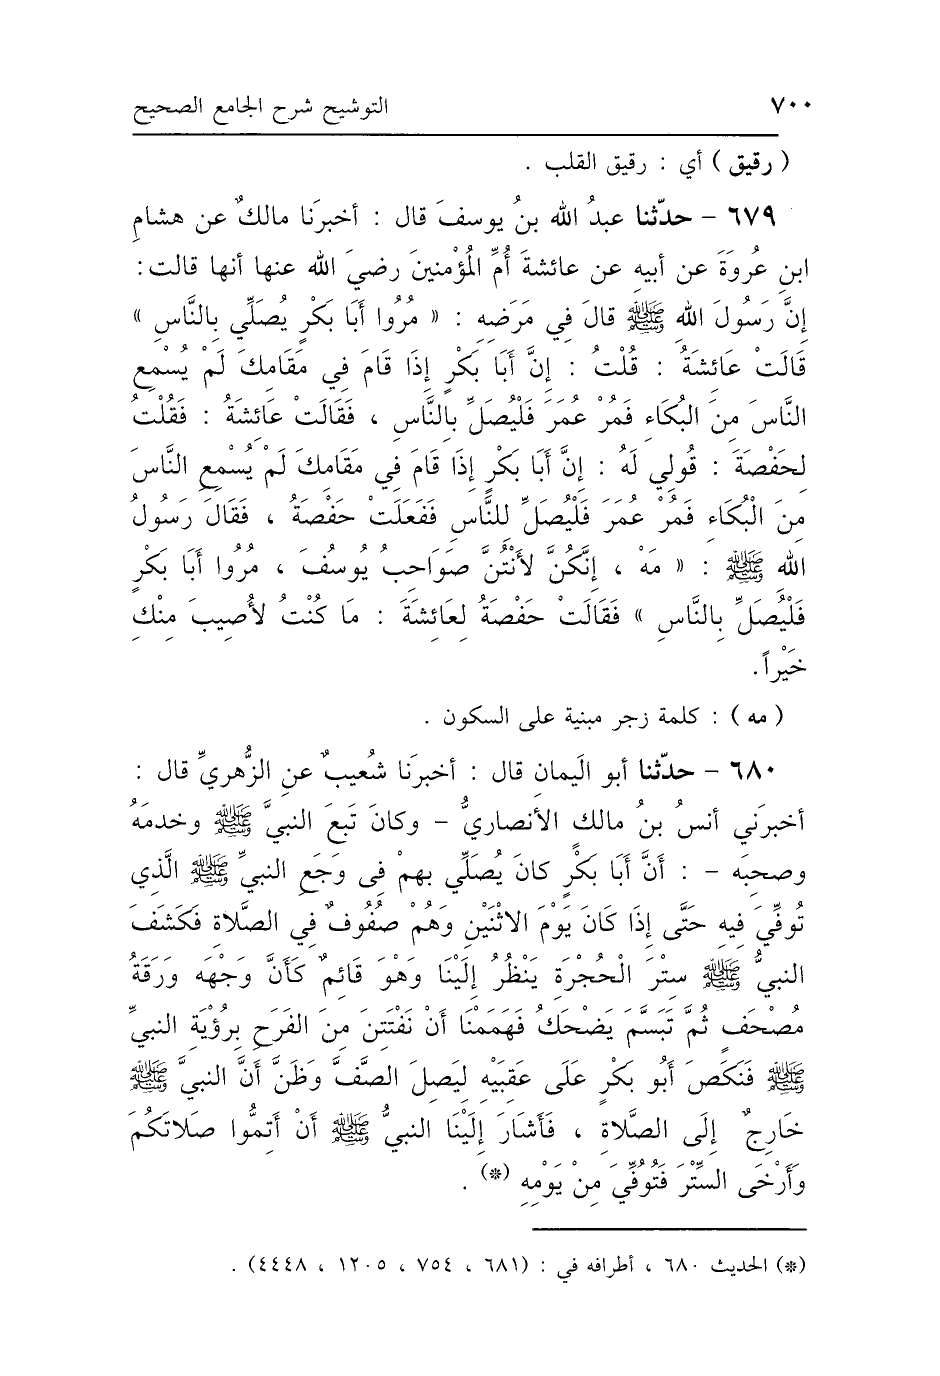 ٧٠٠ التوشيح شرح الجامع الصحيح
( رقيق ) أي : رقيق القلب .
٦٧٩ - حدّثنا عبدُ الله بنُ يوسفَ قال : أخبرَنا مالكٌ عن هشامِ
ابنِ عُروَةَ عن أبيهِ عن عائشةَ أُمِّ المُؤْمنينَ رضيَ الله عنها أنها قالت :
إنَّ رَسُولَ اللهِ ﷺ قالَ فِي مَرَضِهِ : « مُرُوا أَبَا بَكْرٍ يُصَلِّي بِالنَّاسِ »
قَالَتْ عَائِشَةُ : قُلْتُ : إِنَّ أَبَا بَكْرٍ إِذَا قَامَ فِي مَقَامِكَ لَمْ يُسْمِعِ
النَّاسَ مِنَ البُكَاءِ فَمُرْ عُمَرَ فَلْيُصَلِّ بِالنَّاسِ ، فَقَالَتْ عَائِشَةُ : فَقُلْتُ
لِحَفْصَةَ : قُولِي لَهُ : إِنَّ أَبَا بَكْرٍ إِذَا قَامَ فِي مَقَامِكَ لَمْ يُسْمِعِ النَّاسَ
مِنَ الْبُكَاءِ فَمُرْ عُمَرَ فَلْيُصَلِّ لِلنَّاسِ فَفَعَلَتْ حَفْصَةُ ، فَقَالَ رَسُولُ
اللهِ ﷺ : « مَهْ ، إِنَّكُنَّ لأَنْتُنَّ صَوَاحِبُ يُوسُفَ ، مُرُوا أَبَا بَكْرٍ
فَلْيُصَلِّ بِالنَّاسِ » فَقَالَتْ حَفْصَةُ لِعَائِشَةَ : مَا كُنْتُ لأُصِيبَ مِنْكِ
خَيْراً.
( مه ) : كلمة زجر مبنية على السكون .
٦٨٠ - حدّثنا أبو اليَمان قال : أخبرَنا شُعيبٌ عنِ الزُّهريِّ قال :
أخبرَني أنسُ بنُ مالكٍ الأنصاريُّ - وكانَ تَبِعَ النبيَّ ﷺ وخدمَهُ
وصحِبَه - : أَنَّ أَبَا بَكْرٍ كانَ يُصَلِّي بهمْ فِى وَجَعِ النبيِّ ﷺ الَّذِي
تُوفِّيَ فيهِ حَتَّى إِذَا كَانَ يَوْمَ الاثْنَيْنِ وَهُمْ صُفُوفٌ فِي الصَّلاةِ فَكَشَفَ
النبيُّ ﷺ سِتْرَ الْحُجْرَةِ يَنْظُرُ إِلَيْنَا وَهْوَ قَائِمٌ كَأَنَّ وَجْهَه وَرَقَةُ
مُصْحَفٍ ثُمَّ تَبَسَّمَ يَضْحَكُ فَهَمَمْنَا أَنْ نَفْتَتِنَ مِنَ الفَرَحِ بِرُؤْيَةِ النبيِّ
ﷺ فَنَكَصَ أَبُو بَكْرٍ عَلَى عَقِبَيْهِ لِيَصِلَ الصَّفَّ وَظَنَّ أَنَّ النبيَّ ﷺ
خَارِجٌ إِلَى الصَّلاةِ ، فَأَشَارَ إِلَيْنَا النبيُّ ﷺ أَنْ أَتِمُّوا صَلاتَكُمْ
وَأَرْخَى السِّتْرَ فَتُوُفِّيَ مِنْ يَوْمِهِ (*) .
(*) الحديث ٦٨٠ ، أطرافه في : (٦٨١ ، ٧٥٤ ، ١٢٠٥ ، ٤٤٤٨) .